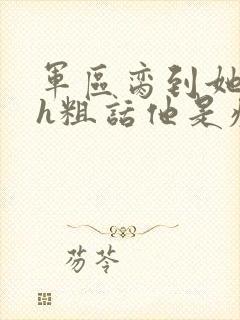 軍區脔到她
h粗話他是
芴苓